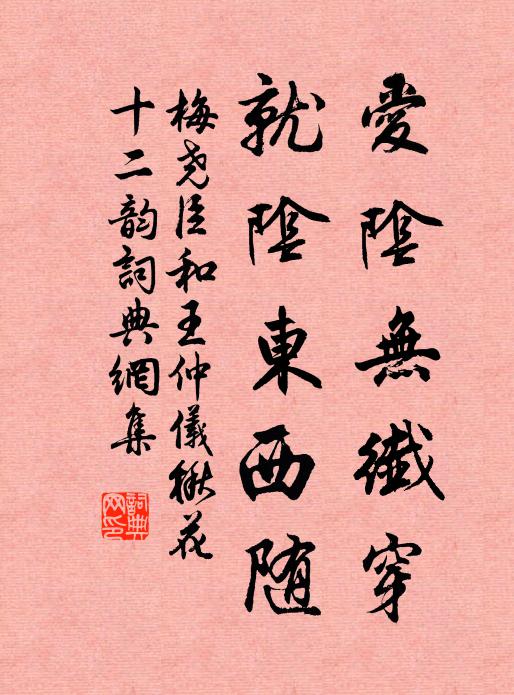 愛陰無纖穿
就陰東西随
梅尧臣和王仲儀楸花
十二韵詞典網集
詞典網印